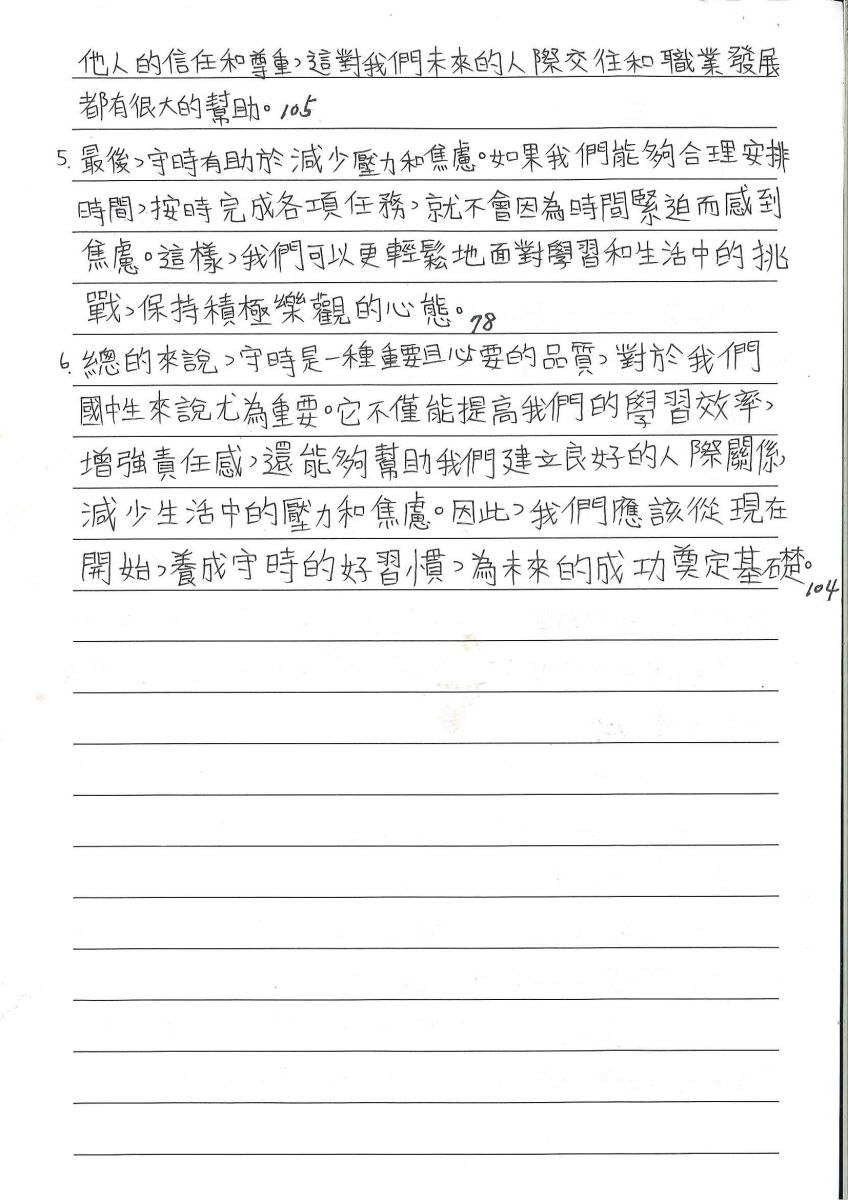 他人的信任和尊重,這對我們未來的人際交往和職業發展
都有很大的幫助。105
5. 最後,守時有助於減少壓力和焦慮。如果我們能夠合理安排
時間,按時完成各項任務,就不會因為時間緊迫而感到
焦慮。這樣,我們可以更輕鬆地面對學習和生活中的挑
戰,保持積極樂觀的心態。78
6. 總的來說,守時是一種重要且必要的品質,對於我們
國中生來說尤為重要。它不僅能提高我們的學習效率,
增強責任感,還能夠幫助我們建立良好的人際關係,
減少生活中的壓力和焦慮。因此,我們應該從現在
開始,養成守時的好習慣,為未來的成功奠定基礎。104